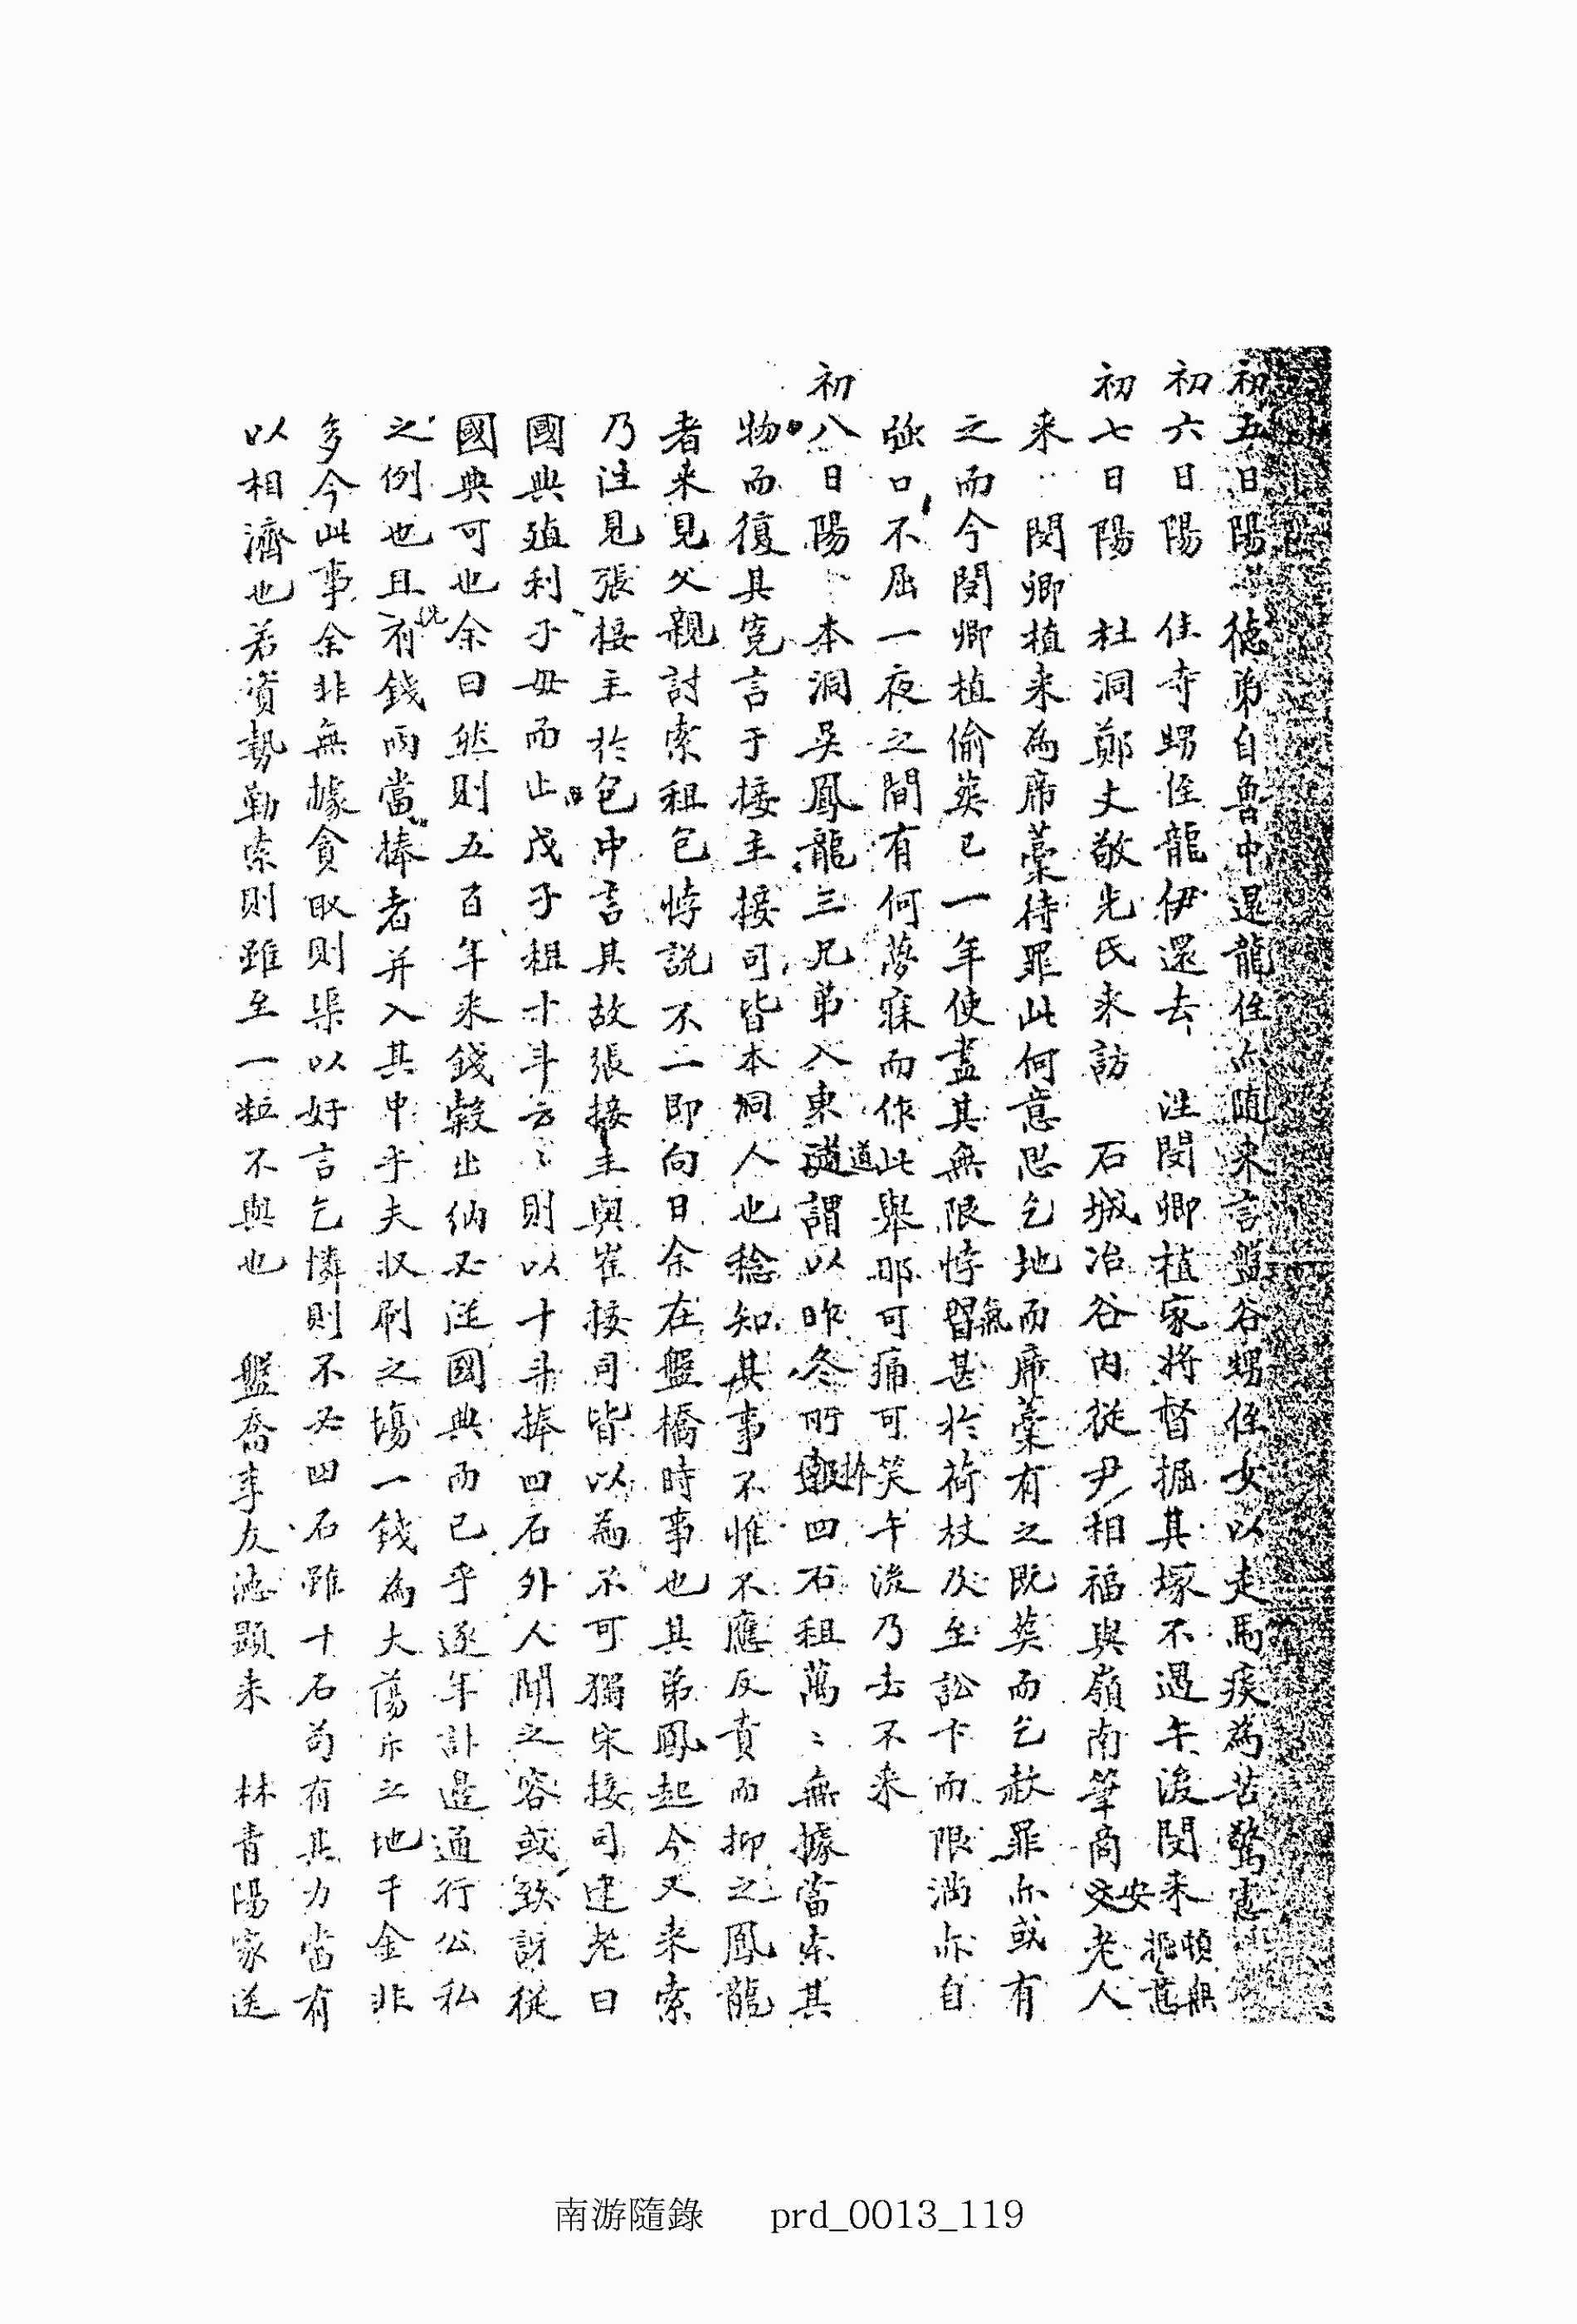 初五日陽 德弟自魯中還龍侄亦隨来言盤谷甥侄女以走馬疾為苦驚
初六日陽 侄寺甥侄龍伊還去 注閔卿植家將督掘其塚不遇午後閔来頓無掘意
初七日陽 杜洞鄭丈敬先氏来訪 石城冶谷內從尹相福與嶺南筆商安老人
来 閔卿植来為席藁待罪此何意思乞地而席藁有之既葬而乞赦罪亦或有
之而今閔卿植偷葬已一年使盡其無限悖氣習甚於荷杖及至訟卞而限滿亦自
強口不屈一夜之間有何夢寐而作此舉耶可痛可笑午後乃去不来
初八日陽 本洞吳鳳龍三兄弟入東道謂以昨冬所捧四石租萬〻無據當索其
物而復其寃言于接主接司皆本洞人也稔知其事不惟不應反責而抑之鳳龍
者来見父親討索租包悖說不一即向日余在盤橋時事也其弟鳳起今又来索
乃注見張接主於包中言其故張接主與崔接司皆以為不可獨宋接司建老曰
國典殖利子母而止戊子租十斗云〻則以十斗捧四石外人聞之容或致訝從
國典可也余曰然則五百年来錢穀出納必從國典而已乎逐年計邊通行公私
之例也且有錢兩當捧者并入其中乎夫収刷之場一錢為大蕩斥之地千金非
多今此事余非無據貪取則渠以好言乞憐則不必四石雖十石苟有其力當有
以相濟也若資勢勒索則雖至一粒不與也 盤喬李友德顯来 林青陽家送
南游隨錄 prd_0013_119